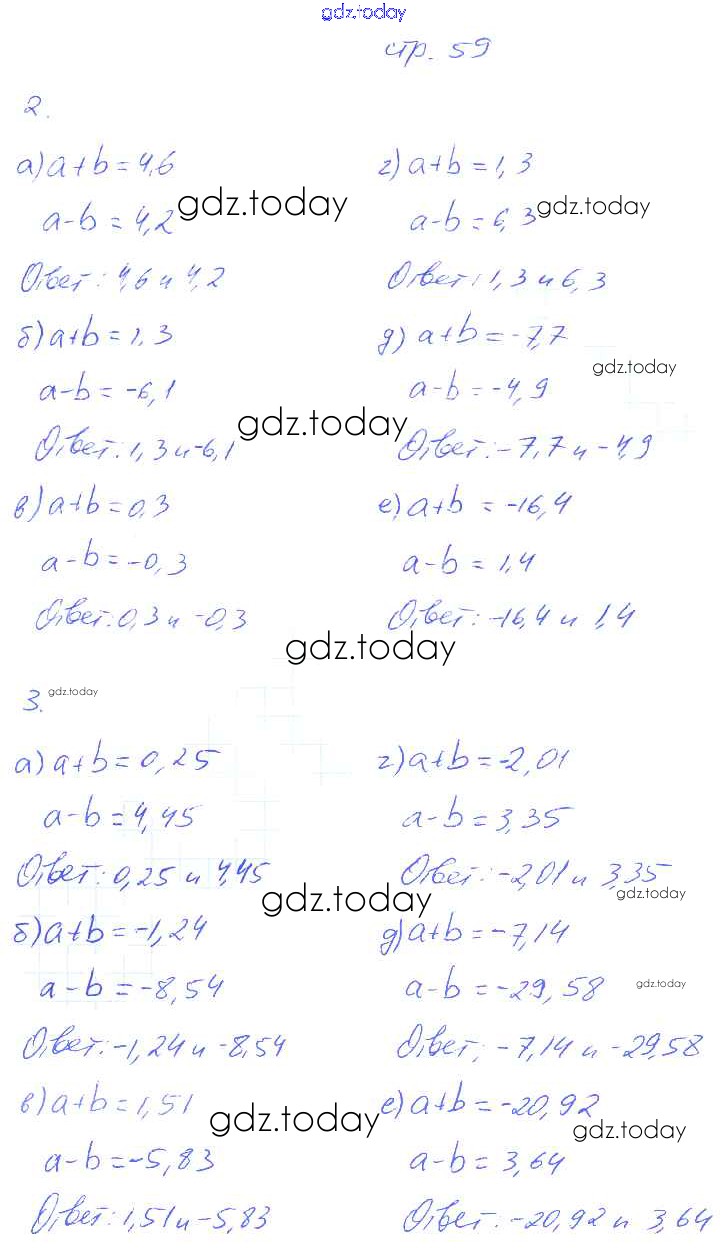 gdz.today
стр. 59
2.
а) a+b=4,6
a-b=4,2
gdz.today
Ответ: 4,6 и 4,2
б) a+b=1,3
a-b=-6,1
gdz.today
Ответ: 1,3 и -6,1
в) a+b=0,3
a-b=-0,3
Ответ: 0,3 и -0,3
gdz.today
г) a+b=1,3
a-b=6,3
gdz.today
Ответ: 1,3 и 6,3
д) a+b=-7,7
gdz.today
a-b=-4,9
Ответ: -7,7 и -4,9
е) a+b=-16,4
a-b=1,4
Ответ: -16,4 и 1,4
3.
gdz.today
а) a+b=0,25
a-b=4,45
Ответ: 0,25 и 4,45
gdz.today
б) a+b=-1,24
a-b=-8,54
Ответ: -1,24 и -8,54
в) a+b=1,51
gdz.today
a-b=-5,83
Ответ: 1,51 и -5,83
г) a+b=-2,01
a-b=3,35
Ответ: -2,01 и 3,35
gdz.today
д) a+b=-7,14
a-b=-29,58
gdz.today
Ответ: -7,14 и -29,58
е) a+b=-20,92
gdz.today
a-b=3,64
Ответ: -20,92 и 3,64